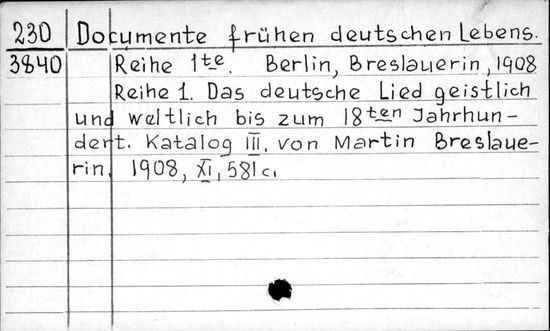 230 Documente frühen deutschen Lebens.
3840 Reihe 1te. Berlin, Breslauerin, 1908
Reihe 1. Das deutsche Lied geistlich
und weltlich bis zum 18ten Jahrhun-
dert. Katalog III. von Martin Breslaue-
rin. 1908, XI, 581 c.